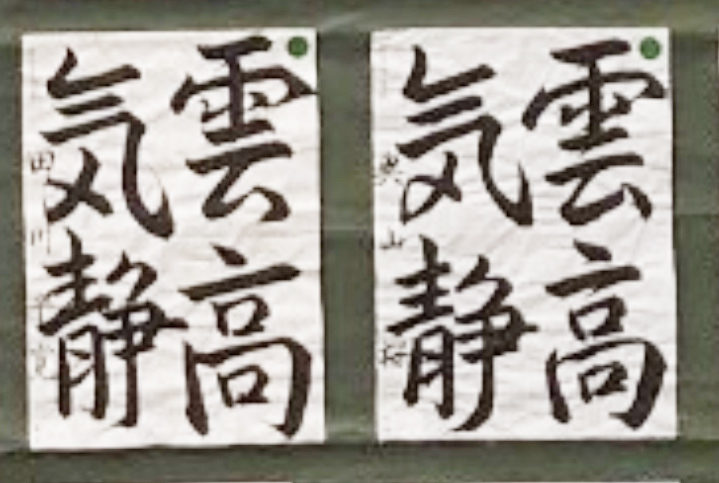 雲高
気静
田川
雲高
気静